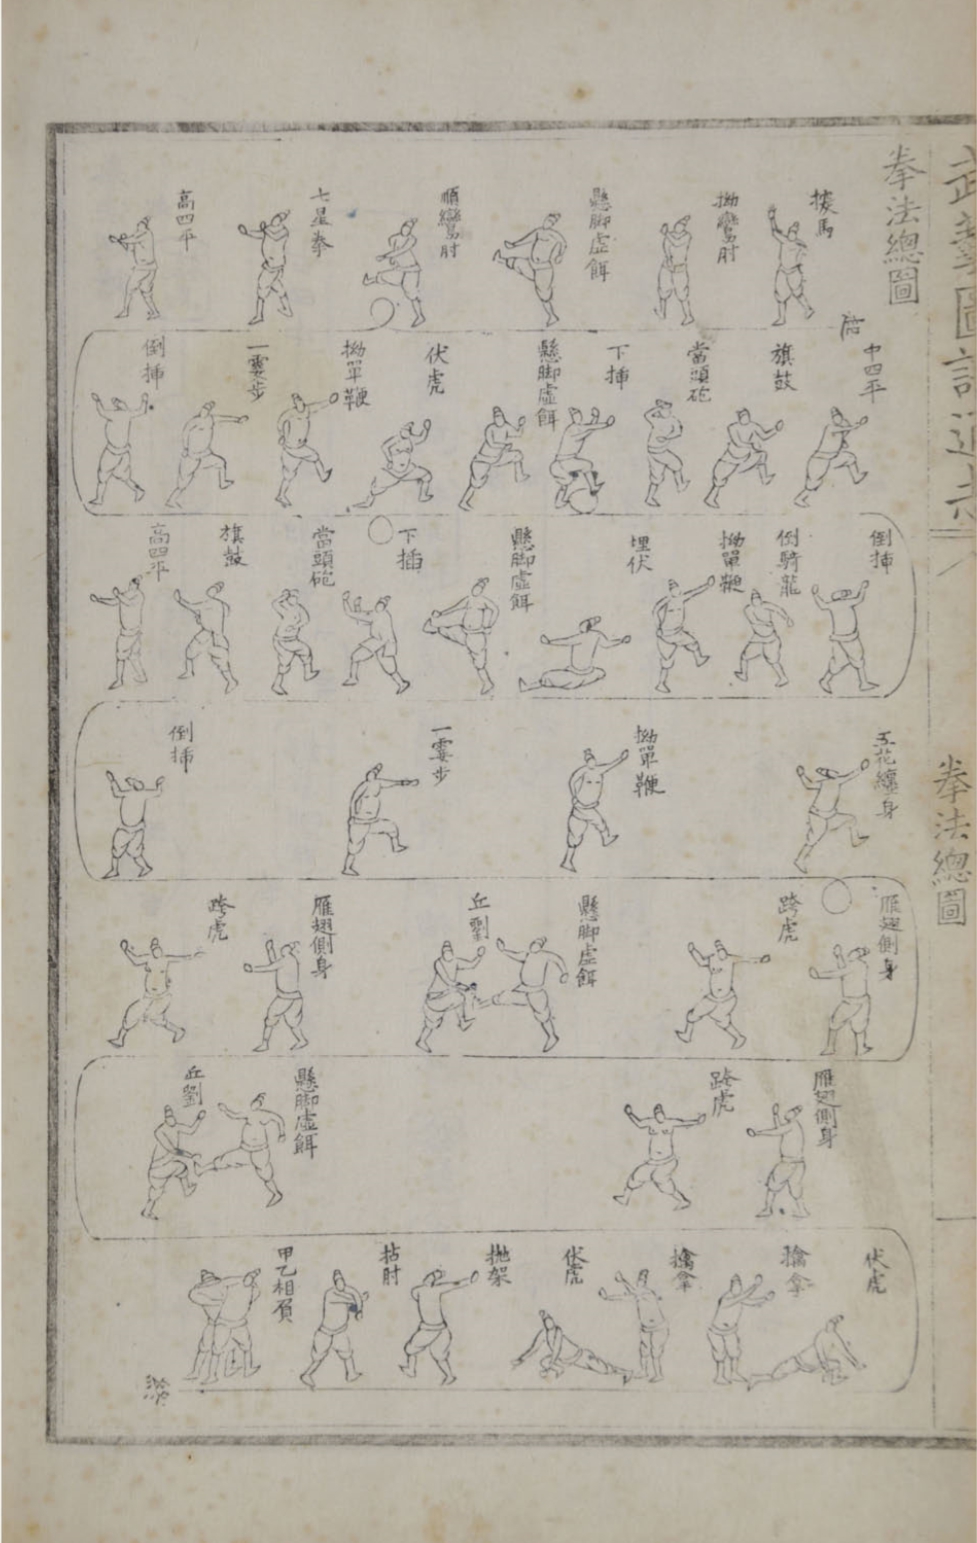 拳法總圖
探馬
拗鸞肘
懸脚虛餌
順鸞肘
七星拳
高四平
中四平
旗鼓
當頭砲
下揷
懸脚虛餌
伏虎
拗單鞭
一霎步
倒揷
倒揷
倒騎龍
拗單鞭
埋伏
懸脚虛餌
下插
當頭砲
旗鼓
高四平
五花纏身
拗單鞭
一霎步
倒揷
雁翅側身
跨虎
懸脚虛餌
丘劉
雁翅側身
跨虎
雁翅側身
跨虎
懸脚虛餌
丘劉
伏虎
擒拿
擒拿
伏虎
抛架
拈肘
甲乙相負
拳法總圖